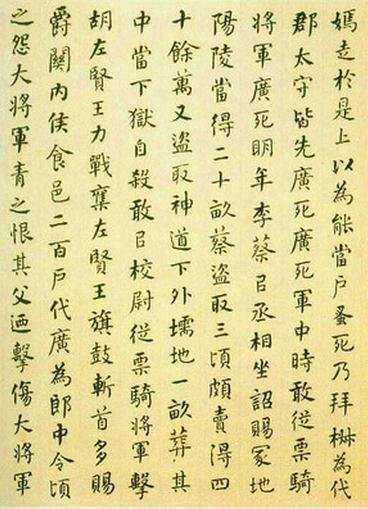 嫣走於是上以為能當戶蚤死乃拜椒為代
郡太守皆先廣死廣死軍中時敢從票騎
將軍廣死明年李蔡㠯丞相坐詔賜冢地
陽陵當得二十畝蔡盜取三頃頗賣得四
十餘萬又盜取神道下外壖地一畝葬其
中當下獄自殺敢㠯校尉從票騎將軍擊
胡左賢王力戰奪左賢王旗鼓斬首多賜
爵關內侯食邑二百戶代廣為郎中令頃
之怨大將軍青之恨其父迺擊傷大將軍